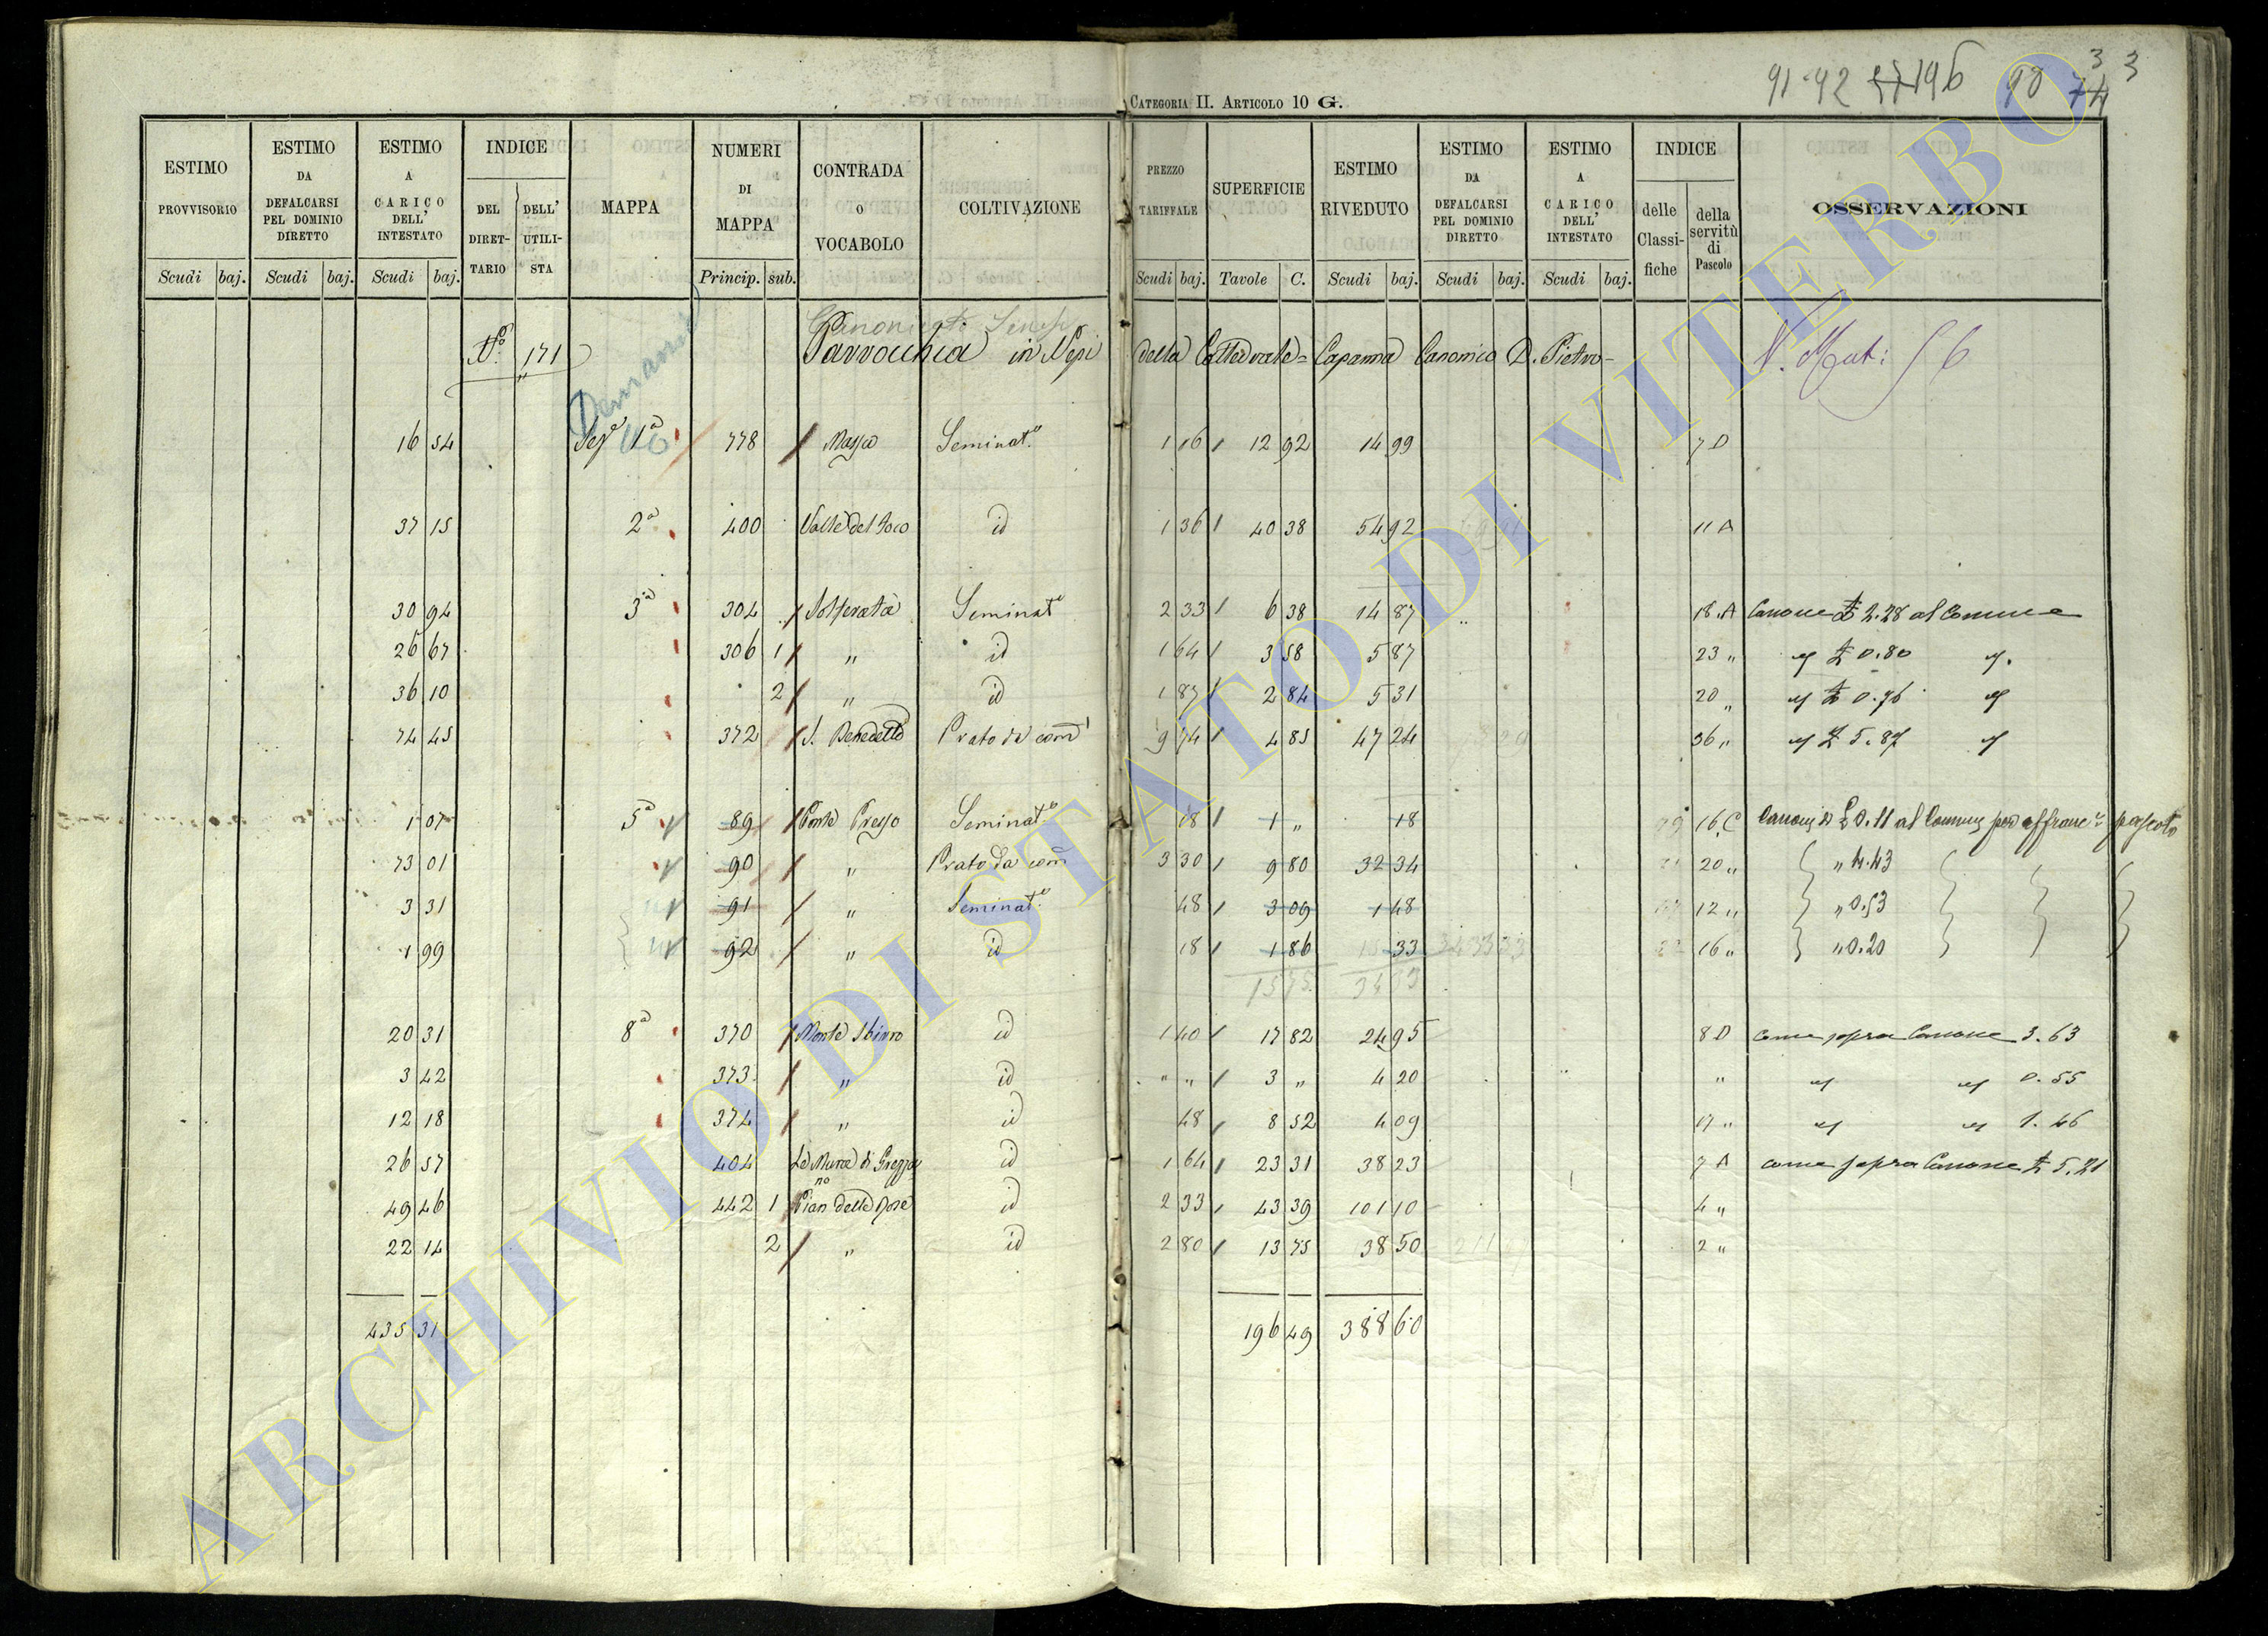 91-92 196 90 74 3 3
CATEGORIA II. ARTICOLO 10 G.
ESTIMO PROVVISORIO Scudi baj. ESTIMO DA DEFALCARSI PEL DOMINIO DIRETTO Scudi baj. ESTIMO A CARICO DELL' INTESTATO Scudi baj. INDICE DEL DIRETTARIO DELL' UTILISTA MAPPA NUMERI DI MAPPA Princip. sub. CONTRADA O VOCABOLO COLTIVAZIONE PREZZO TARIFFALE Scudi baj. SUPERFICIE Tavole C. ESTIMO RIVEDUTO Scudi baj. ESTIMO DA DEFALCARSI PEL DOMINIO DIRETTO Scudi baj. ESTIMO A CARICO DELL' INTESTATO Scudi baj. INDICE delle Classifiche della servitù di Pascolo OSSERVAZIONI
N.º 171 Parrocchia in Nepi della Cattedrale = Capanna Canonico D. Pietro -
Demanio
16 54 1ª 778 Massa Seminat.º 1 16 12 92 14 99 7 D
37 15 2ª 400 Valle del id 1 36 40 38 54 92 11 A
30 94 3ª 304 Solferata Seminatº 2 33 6 38 14 87 18 A Canone £ 2.28 al Comune
26 67 306 1 " id 1 64 3 58 5 87 23 " £ 0.80
36 10 2 " id 1 87 2 84 5 31 20 " £ 0.96
74 45 372 S. Benedetto Prato da 9 74 4 85 47 24 36 " £ 5.87
1 07 5ª 89 Ponte Seminat.º 18 1 " 18 16 C £ 0.11 al Comune per pascolo
73 01 90 " Prato da 3 30 9 80 32 34 20 " " 4.43
3 31 91 " Seminat.º 48 3 09 1 48 12 " " 0.53
1 99 92 " id 18 1 86 33 16 " " 0.20
15 75
20 31 8ª 370 Monte id 1 40 17 82 24 95 8 D come sopra Canone 3.63
3 42 373 " id " " 3 " 4 20 " 0.55
12 18 374 " id 48 8 52 4 09 17 " 1.46
26 57 404 Le Mura di id 1 64 23 31 38 23 7 A come sopra Canone £ 5.21
49 46 442 1 Pian delle Rose id 2 33 43 39 101 10 4 "
22 14 2 " id 2 80 13 75 38 50 2 "
435 31 196 49 388 60
ARCHIVIO DI STATO DI VITERBO